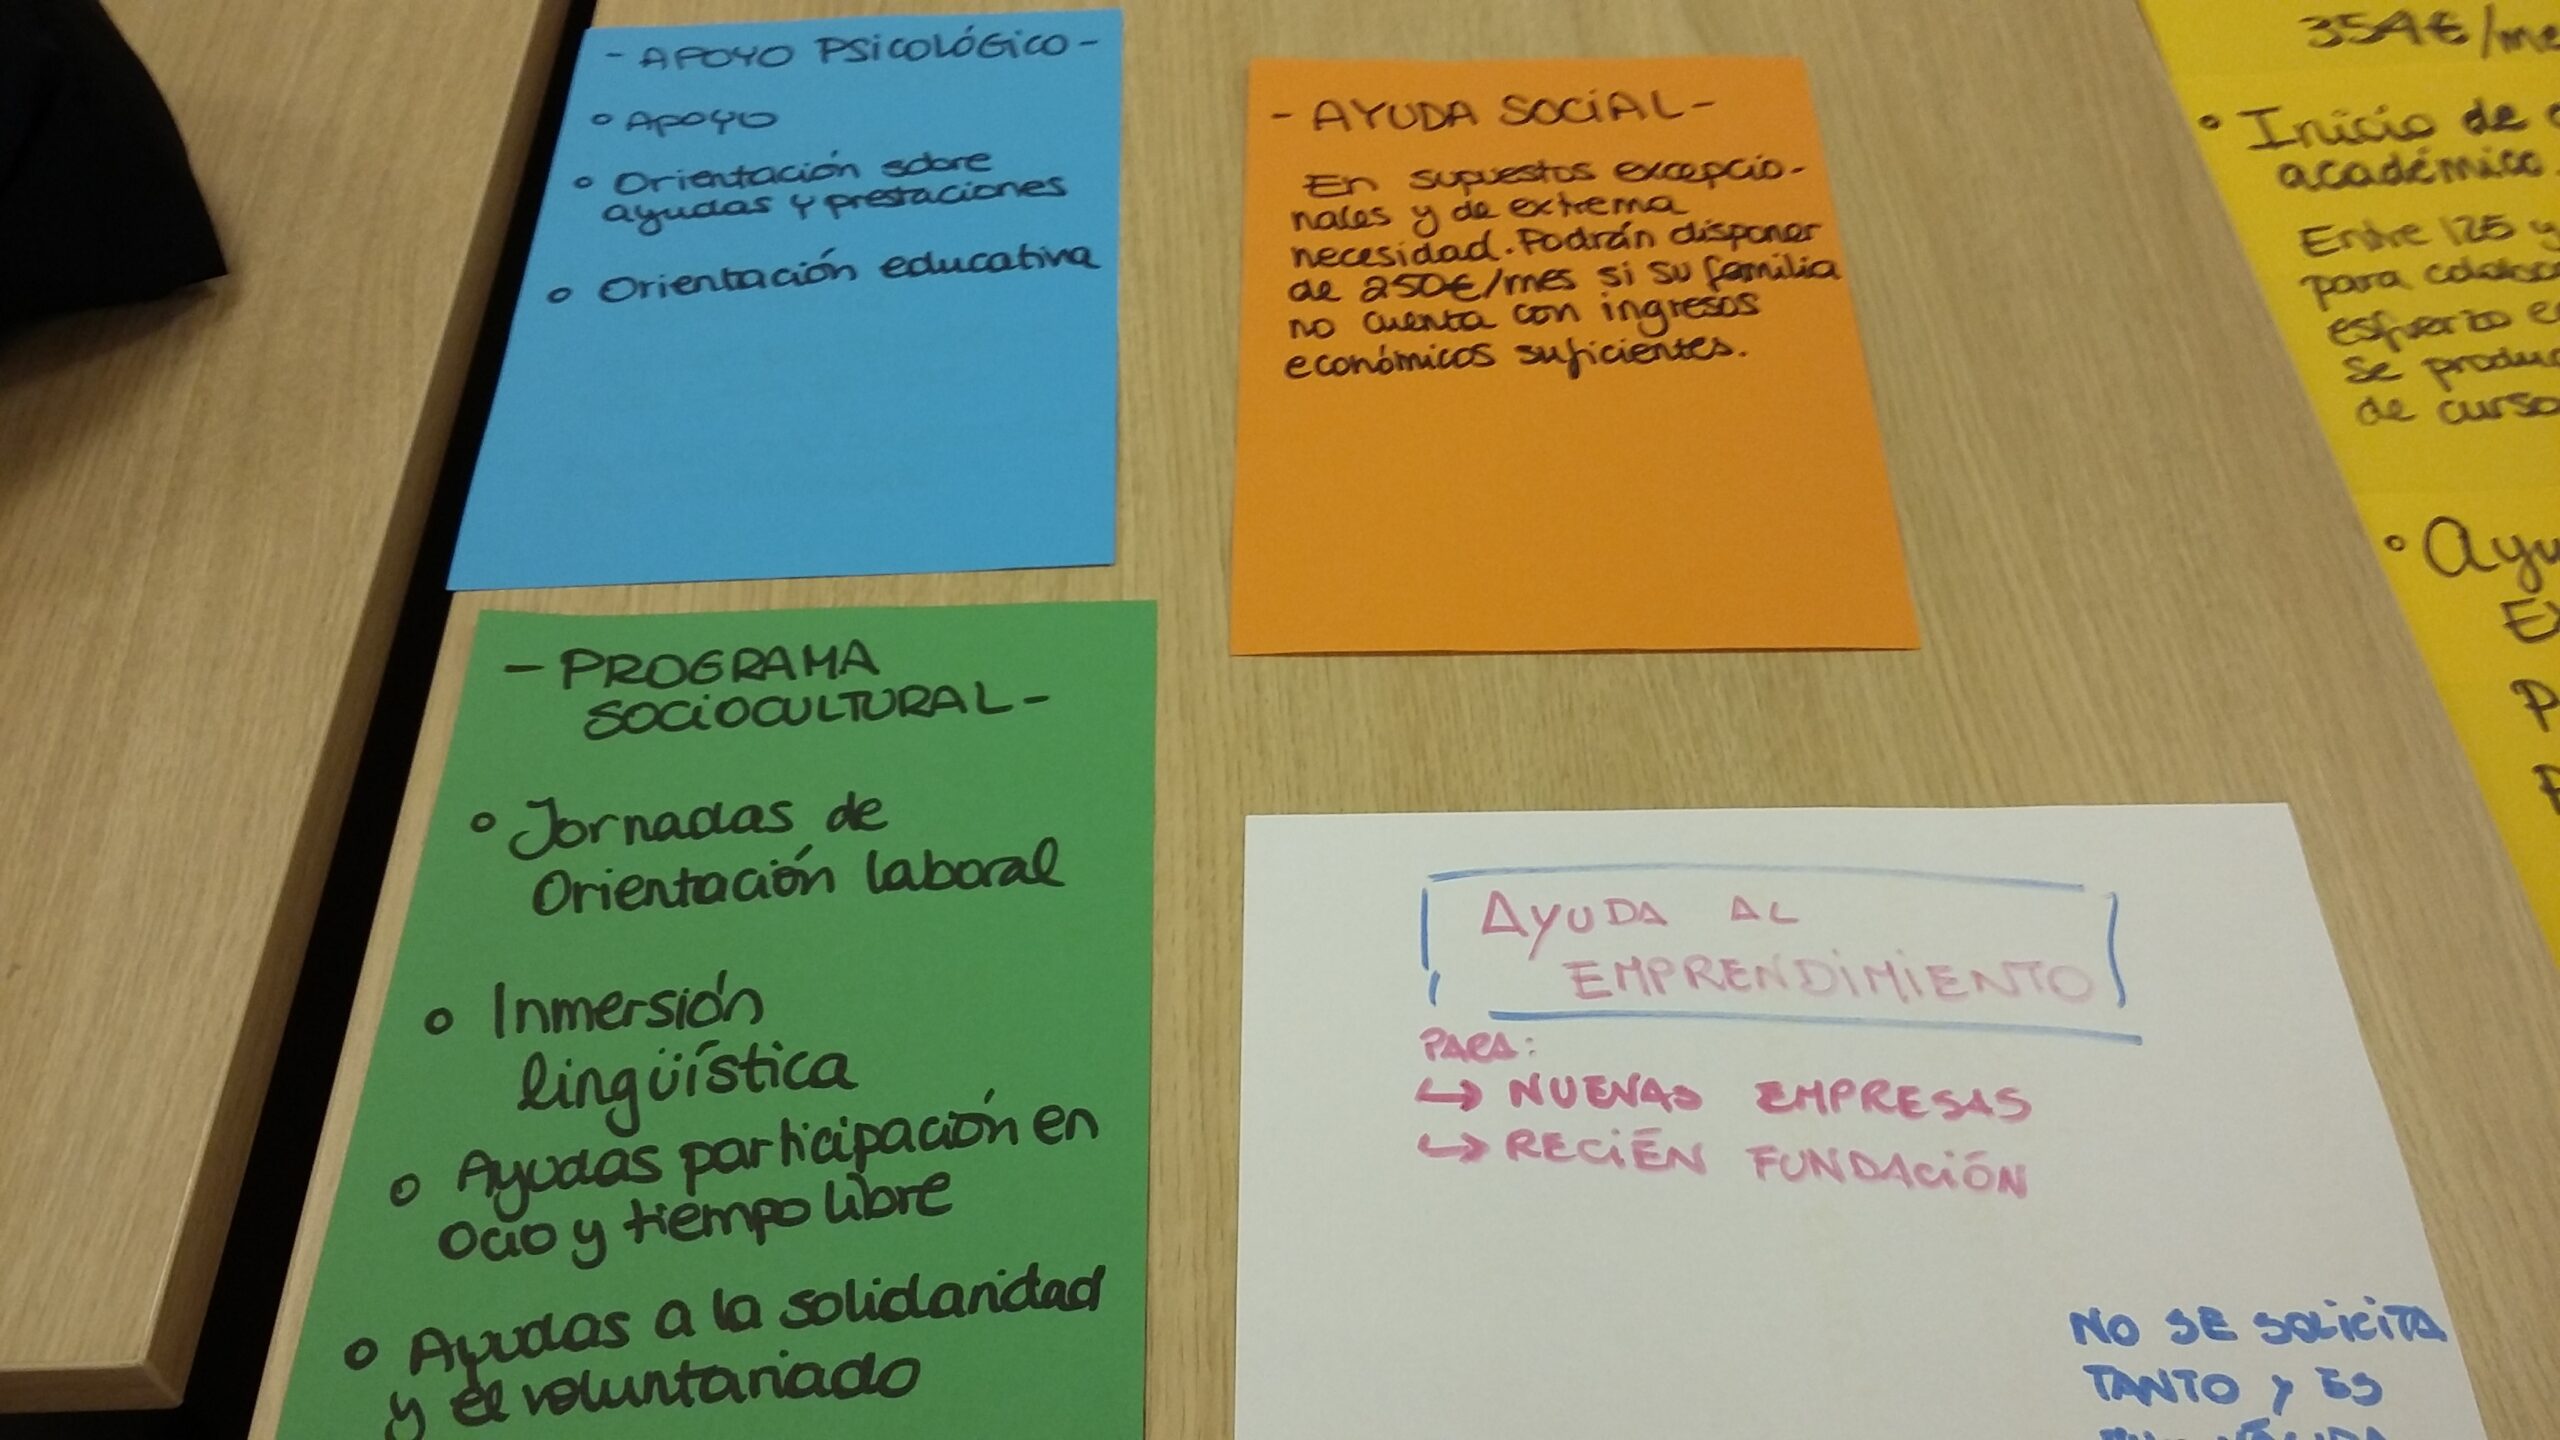 - APOYO PSICOLÓGICO -
° APOYO
° Orientación sobre
ayudas y prestaciones
° Orientación educativa
- AYUDA SOCIAL -
En supuestos excepcio-
nales y de extrema
necesidad. Podrán disponer
de 250€/mes si su familia
no cuenta con ingresos
económicos suficientes.
354€/me
° Inicio de
académico.
Entre 125 y
para
esfuerzo e
se produ
de curso
° Ayu
- PROGRAMA
SOCIOCULTURAL -
° Jornadas de
Orientación laboral
° Inmersión
lingüística
° Ayudas participación en
ocio y tiempo libre
° Ayudas a la solidaridad
y el voluntariado
AYUDA AL
EMPRENDIMIENTO
PARA:
↪ NUEVAS EMPRESAS
↪ RECIÉN FUNDACIÓN
NO SE SOLICITA
TANTO Y ES